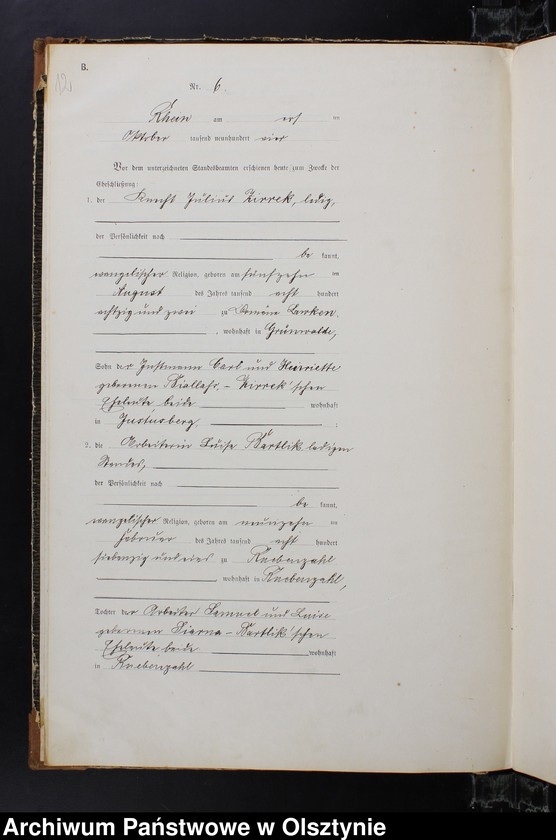 B.
12
Nr. 6.
Rhein am ersten
Oktober tausend neunhundert vier
Vor dem unterzeichneten Standesbeamten erschienen heute zum Zwecke der
Eheschließung:
1. der Knecht Julius Zirrek, ledig,
der Persönlichkeit nach
be kannt,
evangelischer Religion, geboren am fünfzehn ten
August des Jahres tausend acht hundert
achtzig und zwei zu Domäne
, wohnhaft in Grünwalde,
Sohn der Instmann Carl und Henriette
geborenen Biallas - Zirrek'schen
Eheleute beide wohnhaft
in Justusberg ;
2. die Arbeiterin Luise Bartlik ledigen
Standes,
der Persönlichkeit nach
be kannt,
evangelischer Religion, geboren am neunzehn ten
Februar des Jahres tausend acht hundert
siebenzig und eins zu
wohnhaft in
Tochter der Arbeiter Samuel und Luise
geborenen - Bartlik'schen
Eheleute beide wohnhaft
in
Archiwum Państwowe w Olsztynie